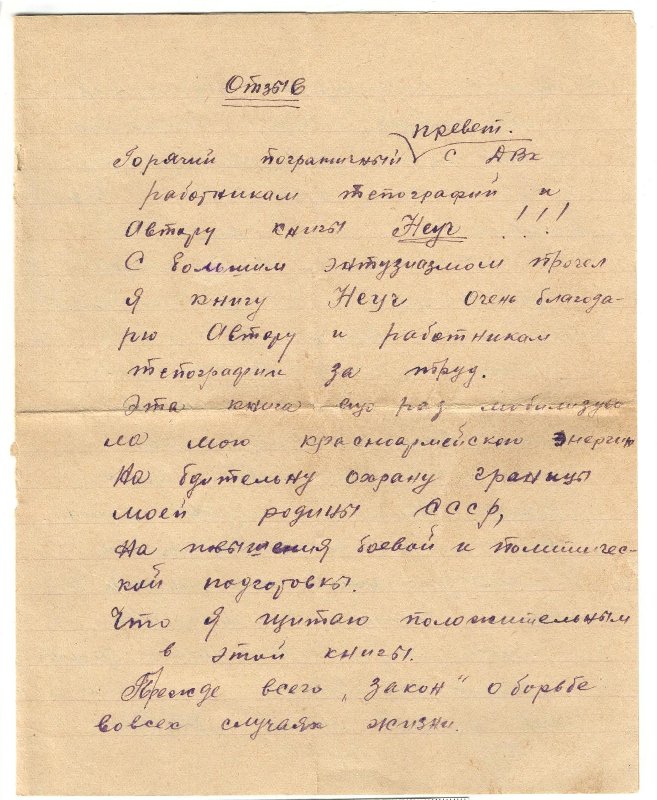 Отзыв
превет.
Горячий пограничный с ДВк
работникам тепографий и
Автору книгы Неуч !!!
С Большим энтузиазмом прочел
я книгу Неуч Очень благода-
рю Автору и работникам
тепографии за труд.
Эта книга ещо раз мобилизу
ла мою красноармейскою энергию
На бдительну охрану границы
моей родины СССР,
На повышения боевой и политичес-
кой подготовкы.
Что я щитаю положительным
в этой книгы.
Прежде всего „Закон" о борьбе
вовсех случаях жизни.